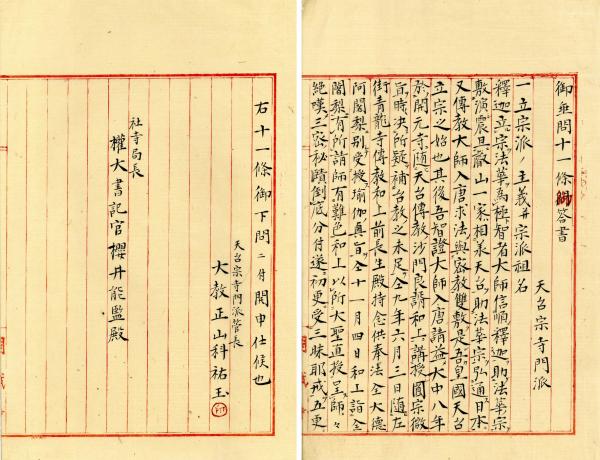 御垂問十一條御答書
天台宗寺門派
一立宗派ノ主義并宗派祖名
釋迦立宗法華爲極智者大師信順釋迦助法華宗
敷演震旦臺山一家相義天台助法華宗弘通日本
又傳教大師入唐求法與密教雙敷是吾皇國天台
立宗之始也其後吾智證大師入唐請益大中八年
於開元寺随天台傳教沙門良諝和上講授圓宗微
旨時決所疑補台教之未足仝九年六月三日随左
街青龍寺傳教和上前長生殿持念供奉法全大德
阿闍梨別受授瑜伽眞旨仝十一月四日和上詣全
闍梨有所請師有難色和上以所大聖直授呈師々
絶嘆三密秘賾倒底分付遂初更受三昧耶戒五更
右十一條御下問ニ付開申仕候也
天台宗寺門派管長
大教正山科祐玉
社寺局長
權大書記官櫻井能監殿